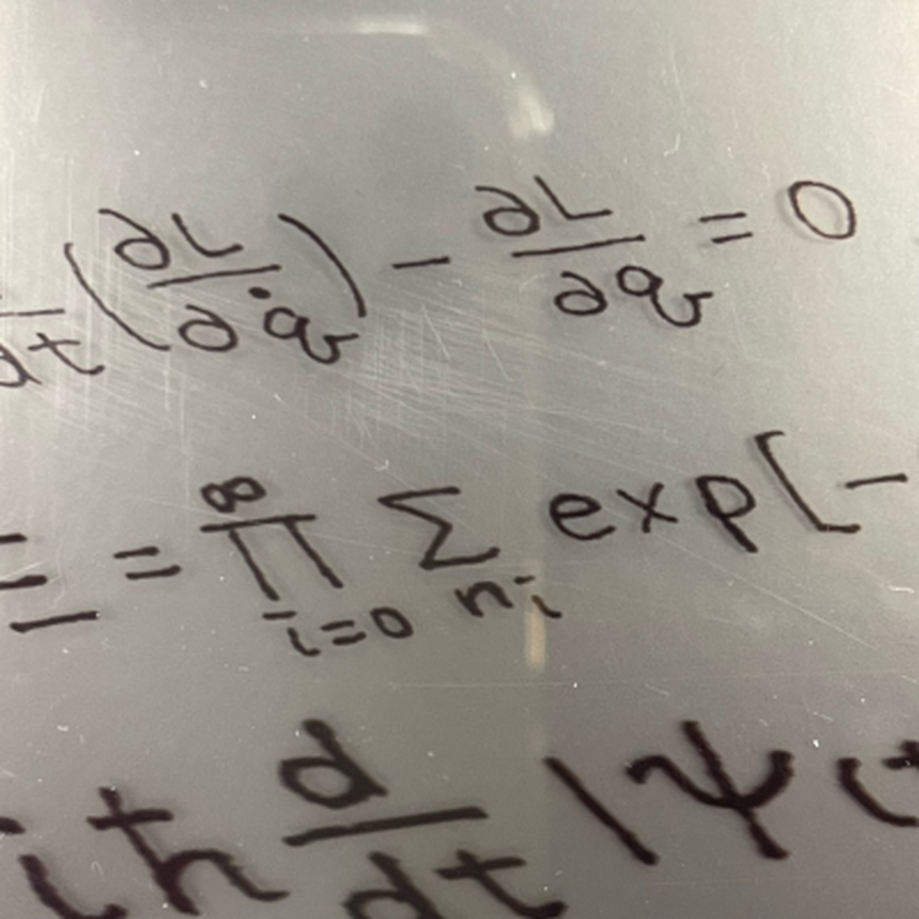 d/dt(∂L/∂q̇) − ∂L/∂q = 0
Ξ = ∏_{i=0}^{∞} Σ_{n_i} exp[−
iħ d/dt |ψ(